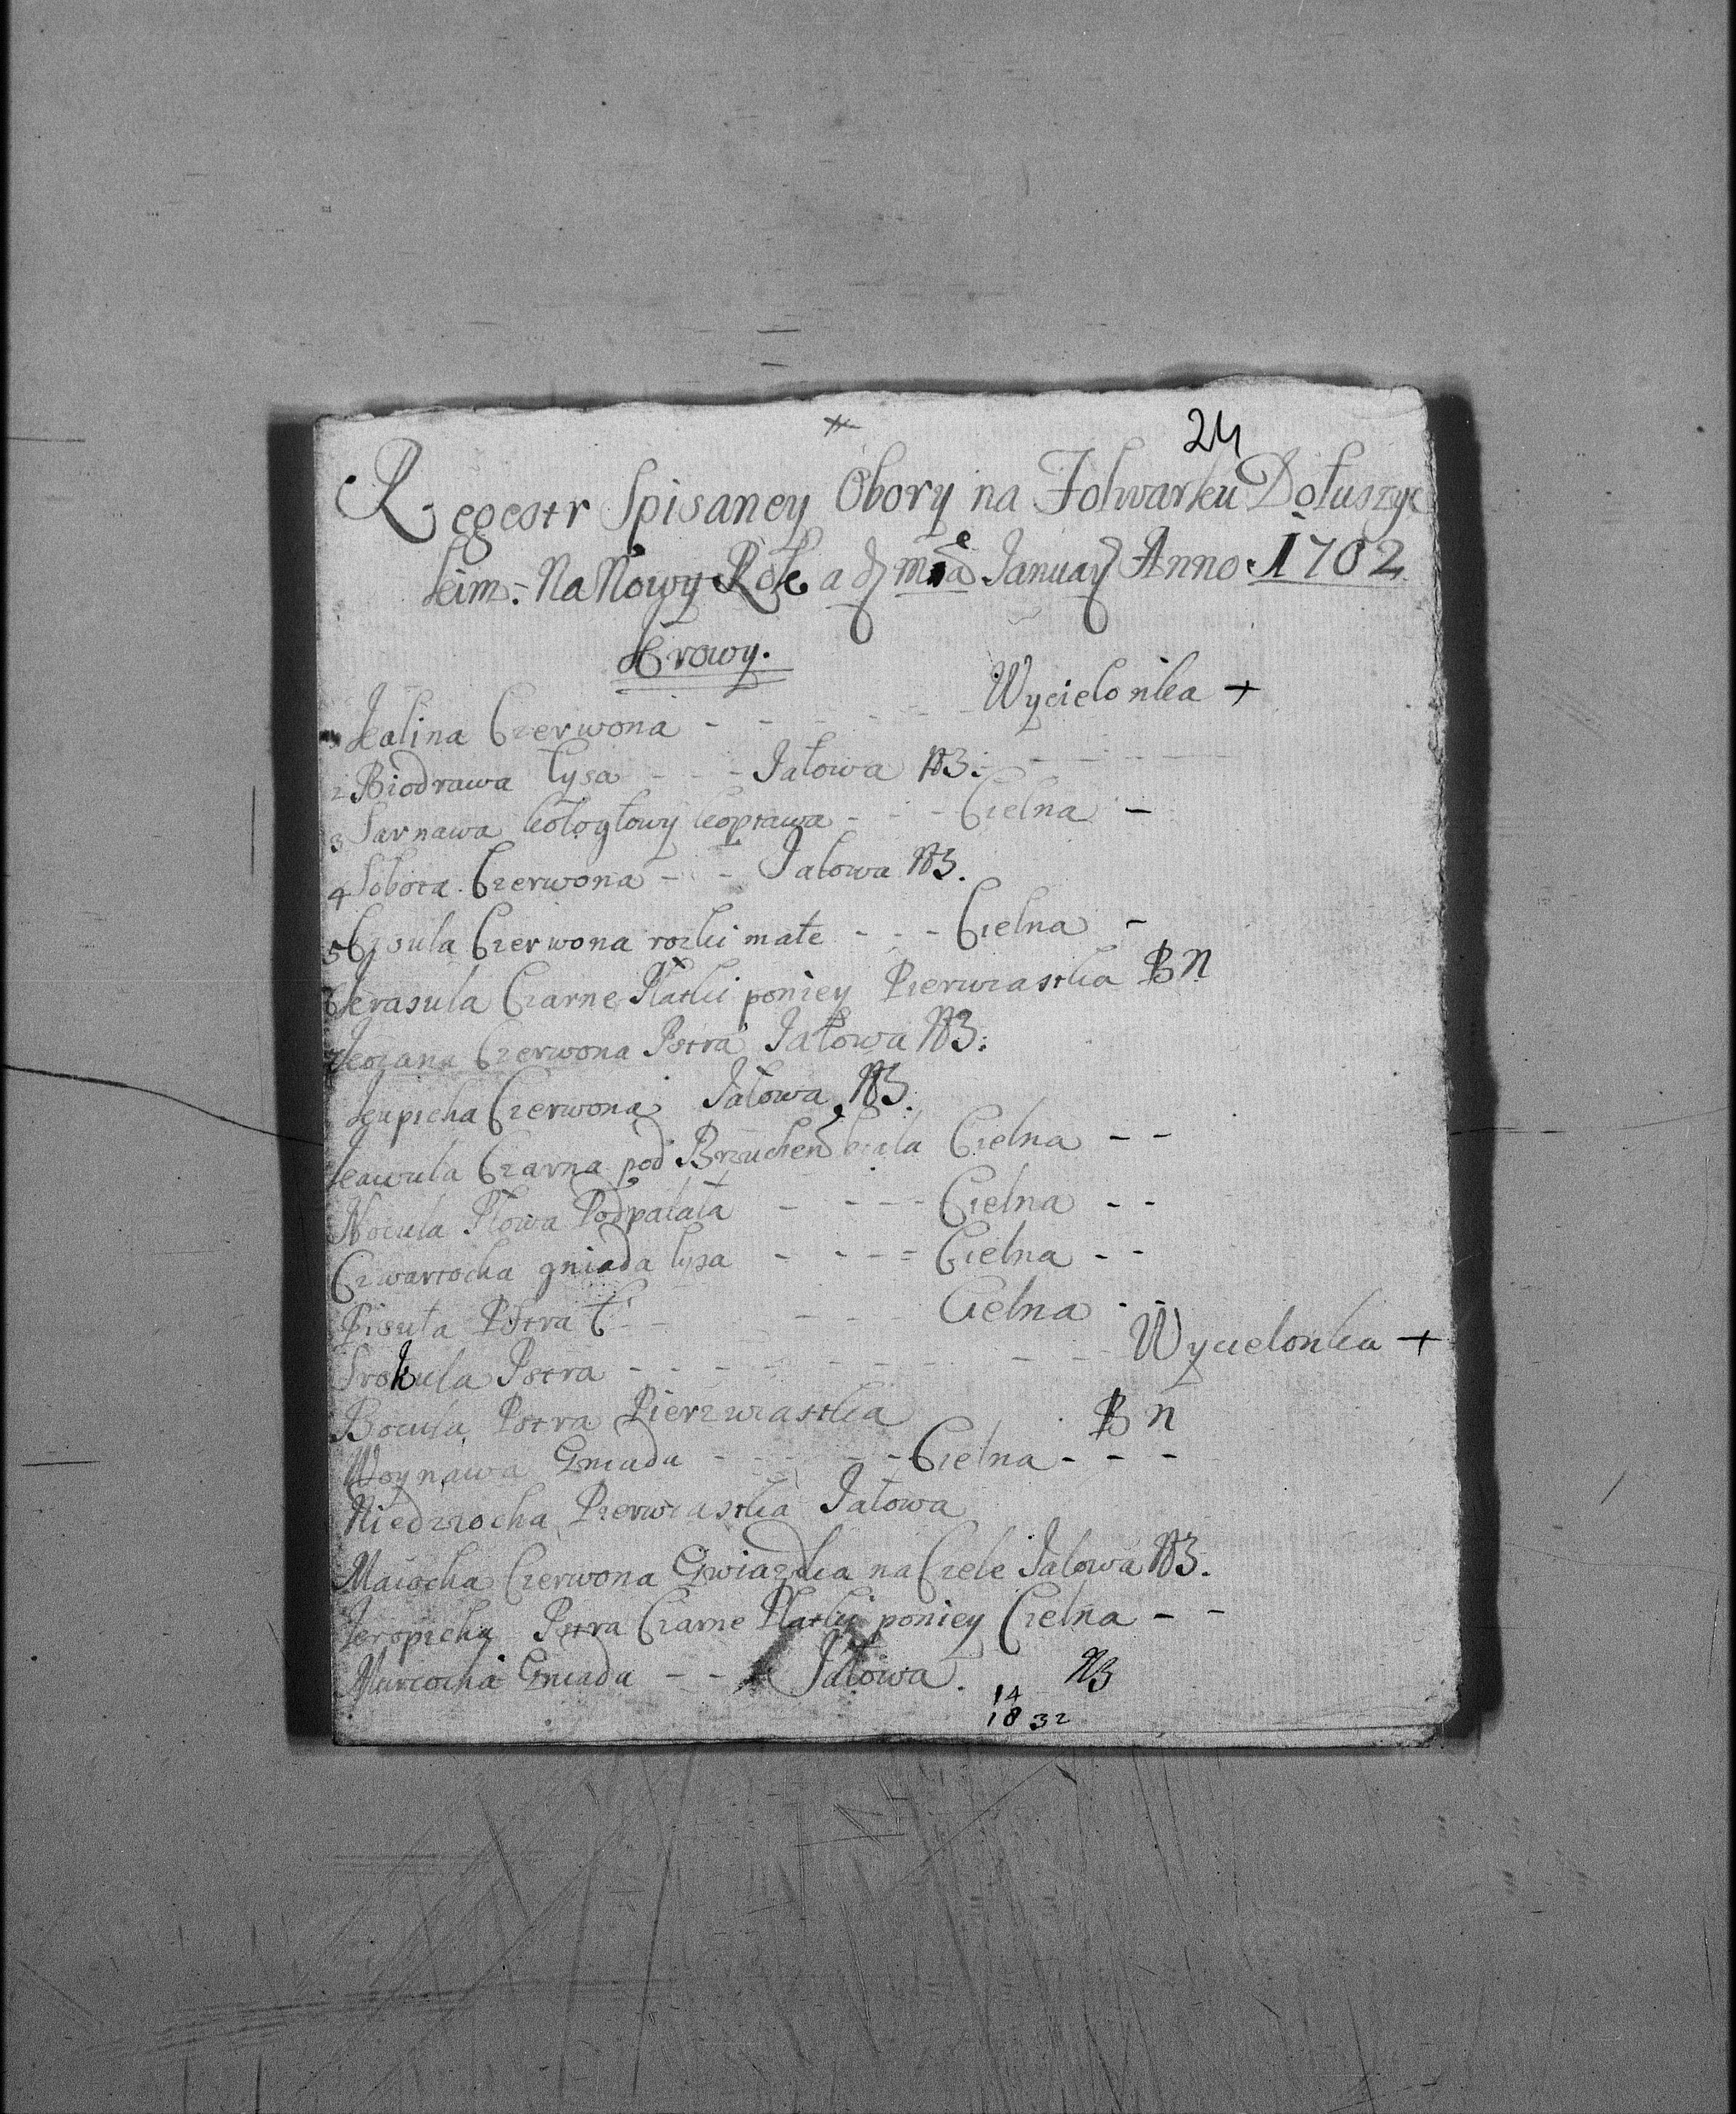 24
Regestr Spisaney Obory na Folwarku Dołuszyc
kim. Na Nowy Rok a d mca January Anno 1702
Krowy.
Kalina Czerwona - - - - - Wycielonka +
2 Biodrawa Łysa - - - Jałowa NB:
3 Sarnawa - - - Cielna -
4 Sobota Czerwona - - Jałowa NB.
5 Czerwona rozki małe - - - Cielna -
6 Krasula Czarne Płatki poniey Pierwiastka B N
7 Czerwona Pstra Jałowa NB:
Kupicha Czerwona Jałowa NB.
Kawula Czarna pod Brzuchem biala Cielna - -
Nocula Płowa Podpalała - - - - Cielna - -
Czwartocha gniada łysa - - - = Cielna - -
Pisuła Pstra C - - - - Cielna - -
Srokula Pstra - - - - - - - - - Wycielonka +
Bocula Pstra Pierzwiastka B n
Woynawa Gniada - - - - - Cielna - - -
Niedziocha Pierwiastka Jałowa
Maiocha Czerwona Gwiazdka na Czele Jałowa NB.
Kropicha Pstra Czarne Płatki poniey Cielna - -
Marcocha Gniada - - - Jałowa. NB
14
18 32